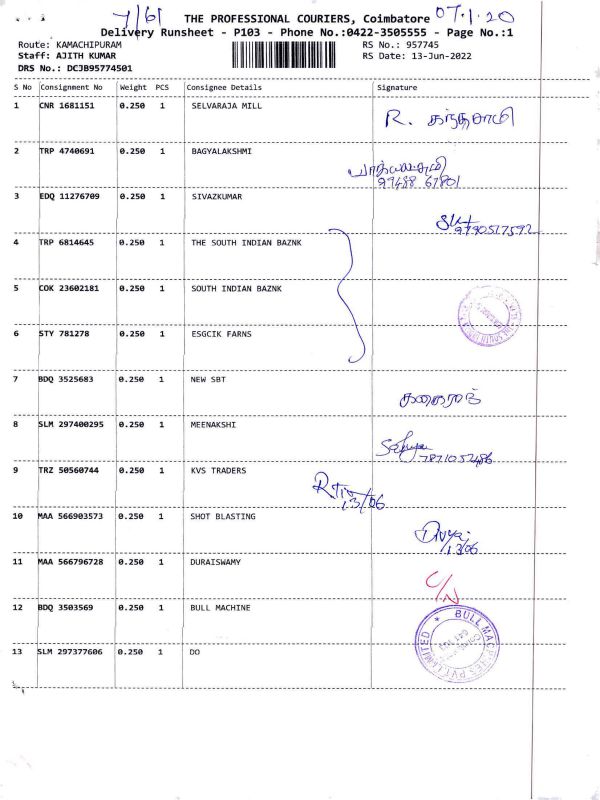 7/61 THE PROFESSIONAL COURIERS, Coimbatore 07.1.20
Delivery Runsheet - P103 - Phone No.:0422-3505555 - Page No.:1
Route: KAMACHIPURAM RS No.: 957745
Staff: AJITH KUMAR RS Date: 13-Jun-2022
DRS No.: DCJB95774501
S No Consignment No Weight PCS Consignee Details Signature
1 CNR 1681151 0.250 1 SELVARAJA MILL R. கந்தசாமி
2 TRP 4740691 0.250 1 BAGYALAKSHMI
99488 67801
3 EDQ 11276709 0.250 1 SIVAZKUMAR
9790517592
4 TRP 6814645 0.250 1 THE SOUTH INDIAN BAZNK
5 COK 23602181 0.250 1 SOUTH INDIAN BAZNK
6 STY 781278 0.250 1 ESGCIK FARNS
7 BDQ 3525683 0.250 1 NEW SBT
8 SLM 297400295 0.250 1 MEENAKSHI
7871052486
9 TRZ 50560744 0.250 1 KVS TRADERS
13/06
10 MAA 566903573 0.250 1 SHOT BLASTING Divya
13/06
11 MAA 566796728 0.250 1 DURAISWAMY C/N
12 BDQ 3503569 0.250 1 BULL MACHINE BULL MACHINES PVT LIMITED
13 SLM 297377606 0.250 1 DO